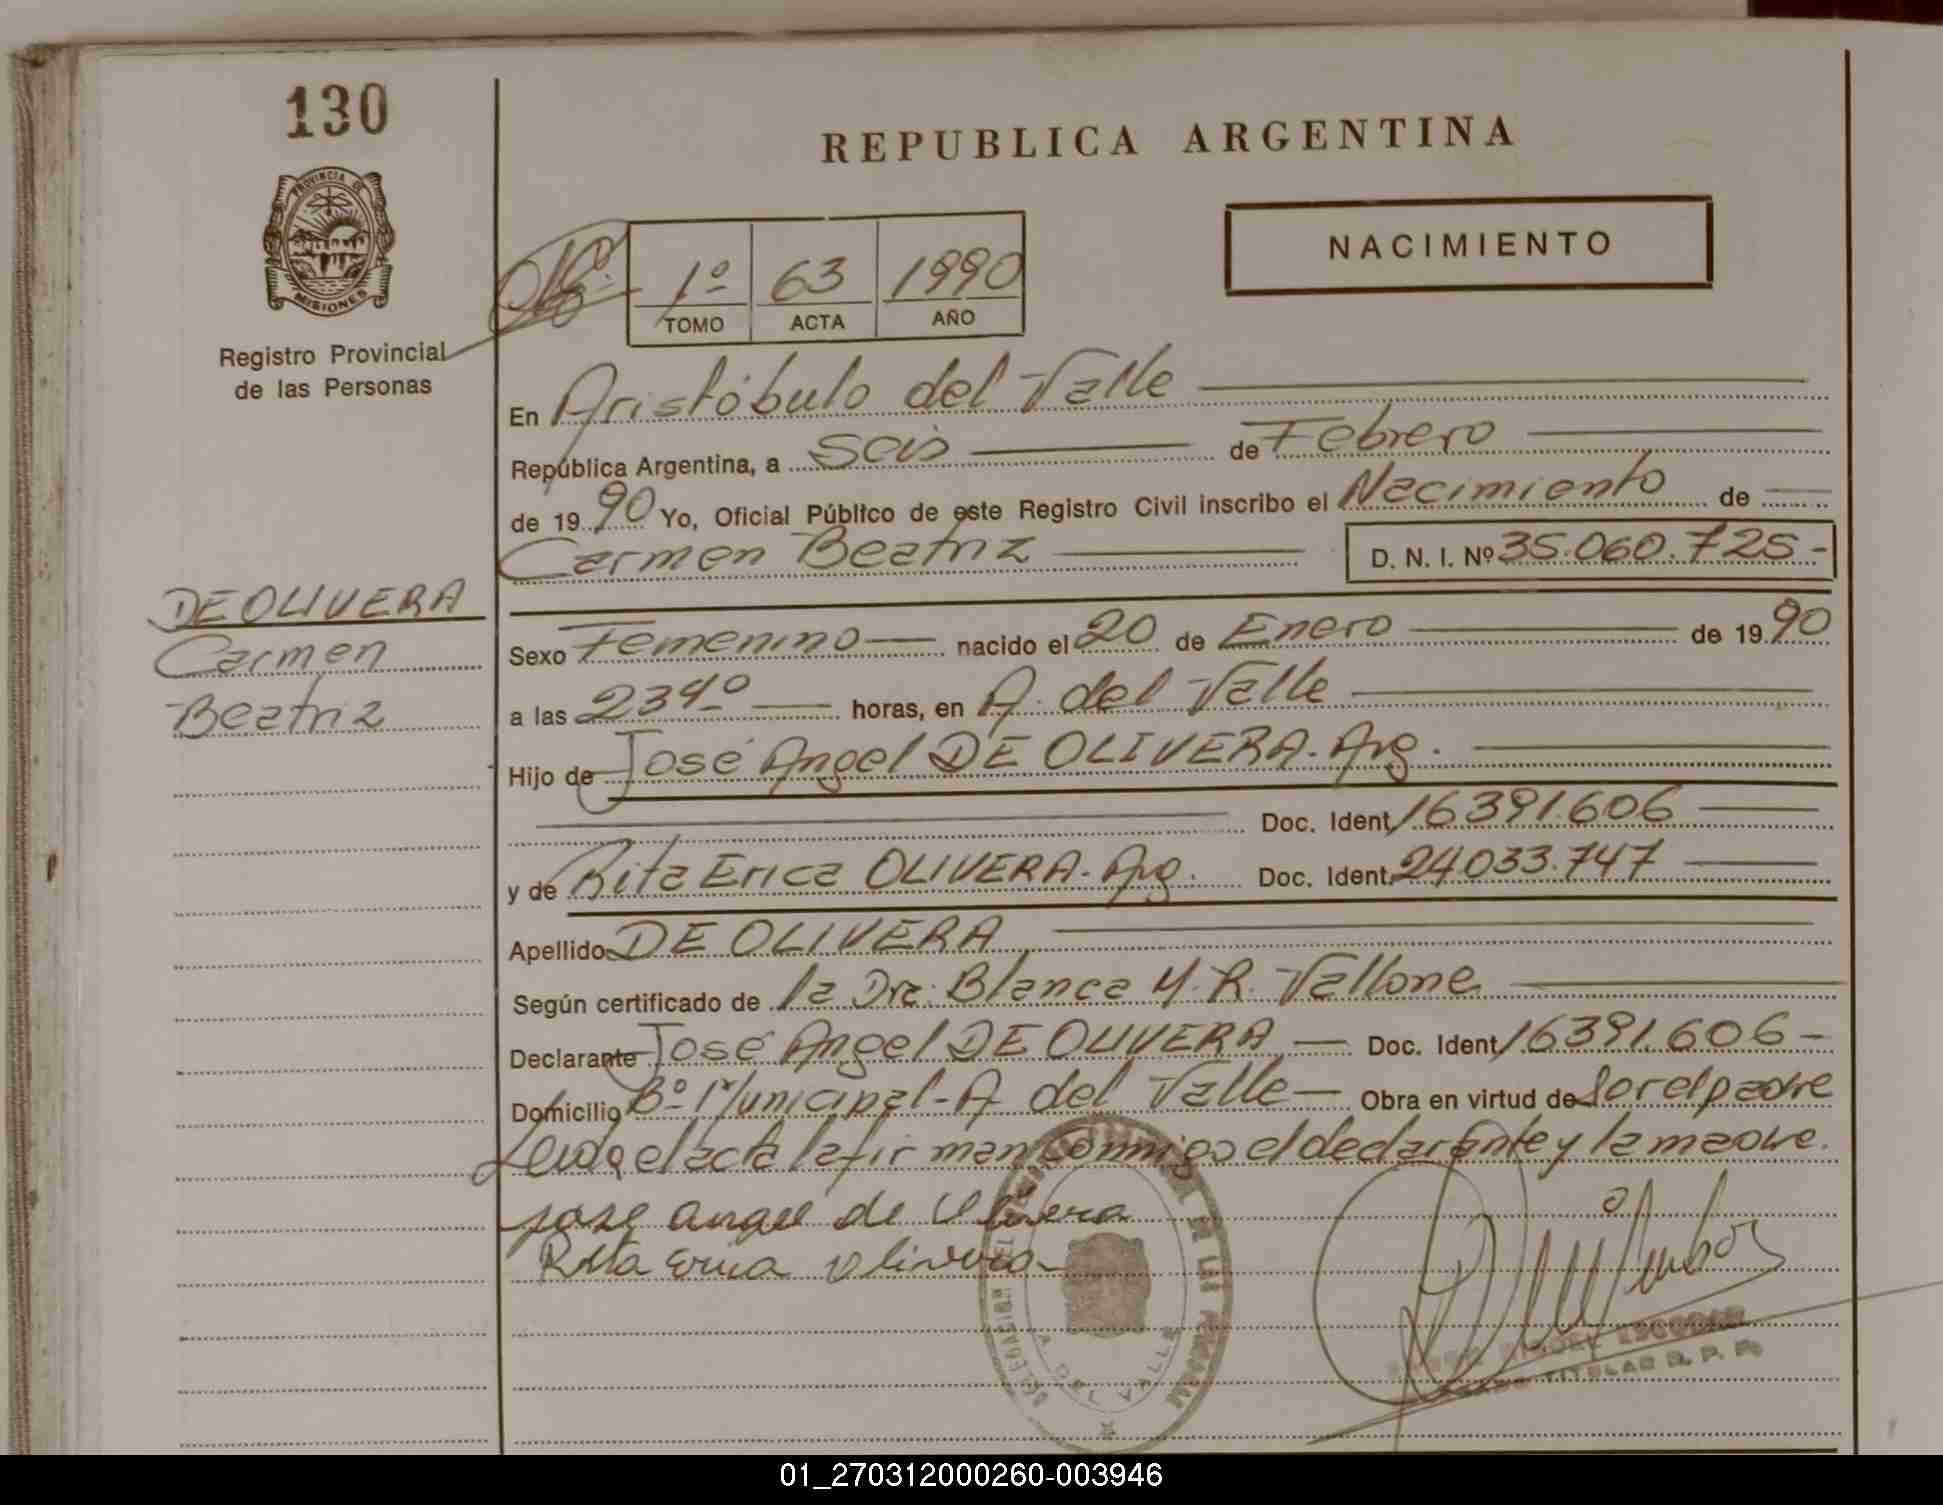 130
REPUBLICA ARGENTINA
PROVINCIA DE
MISIONES
NACIMIENTO
1º 63 1990
TOMO ACTA AÑO
Registro Provincial
de las Personas
En Aristóbulo del Valle
República Argentina, a seis de Febrero
de 1990 Yo, Oficial Público de este Registro Civil inscribo el Nacimiento de
Carmen Beatriz D. N. I. Nº 35.060.725-
DE OLIVERA
Carmen
Beatriz
Sexo Femenino nacido el 20 de Enero de 1990
a las horas, en A. del Valle
Hijo de José Angel DE OLIVERA. Arg.
Doc. Ident. 16391.606
y de Rita Erica OLIVERA. Arg. Doc. Ident. 24033.747
Apellido DE OLIVERA
Según certificado de la Dra. Blanca M. R. Vallone
Declarante José Angel DE OLIVERA Doc. Ident. 16391.606-
Domicilio Bº Municipal-A del Valle Obra en virtud de Ser el padre
Leida el acta la firman conmigo el declarante y la madre.
jose angel de Olivera
Rita Erica Olivera
DELEGACION
A. DEL VALLE
ESCOBAR
TITULAR R. P. P.
01_270312000260-003946